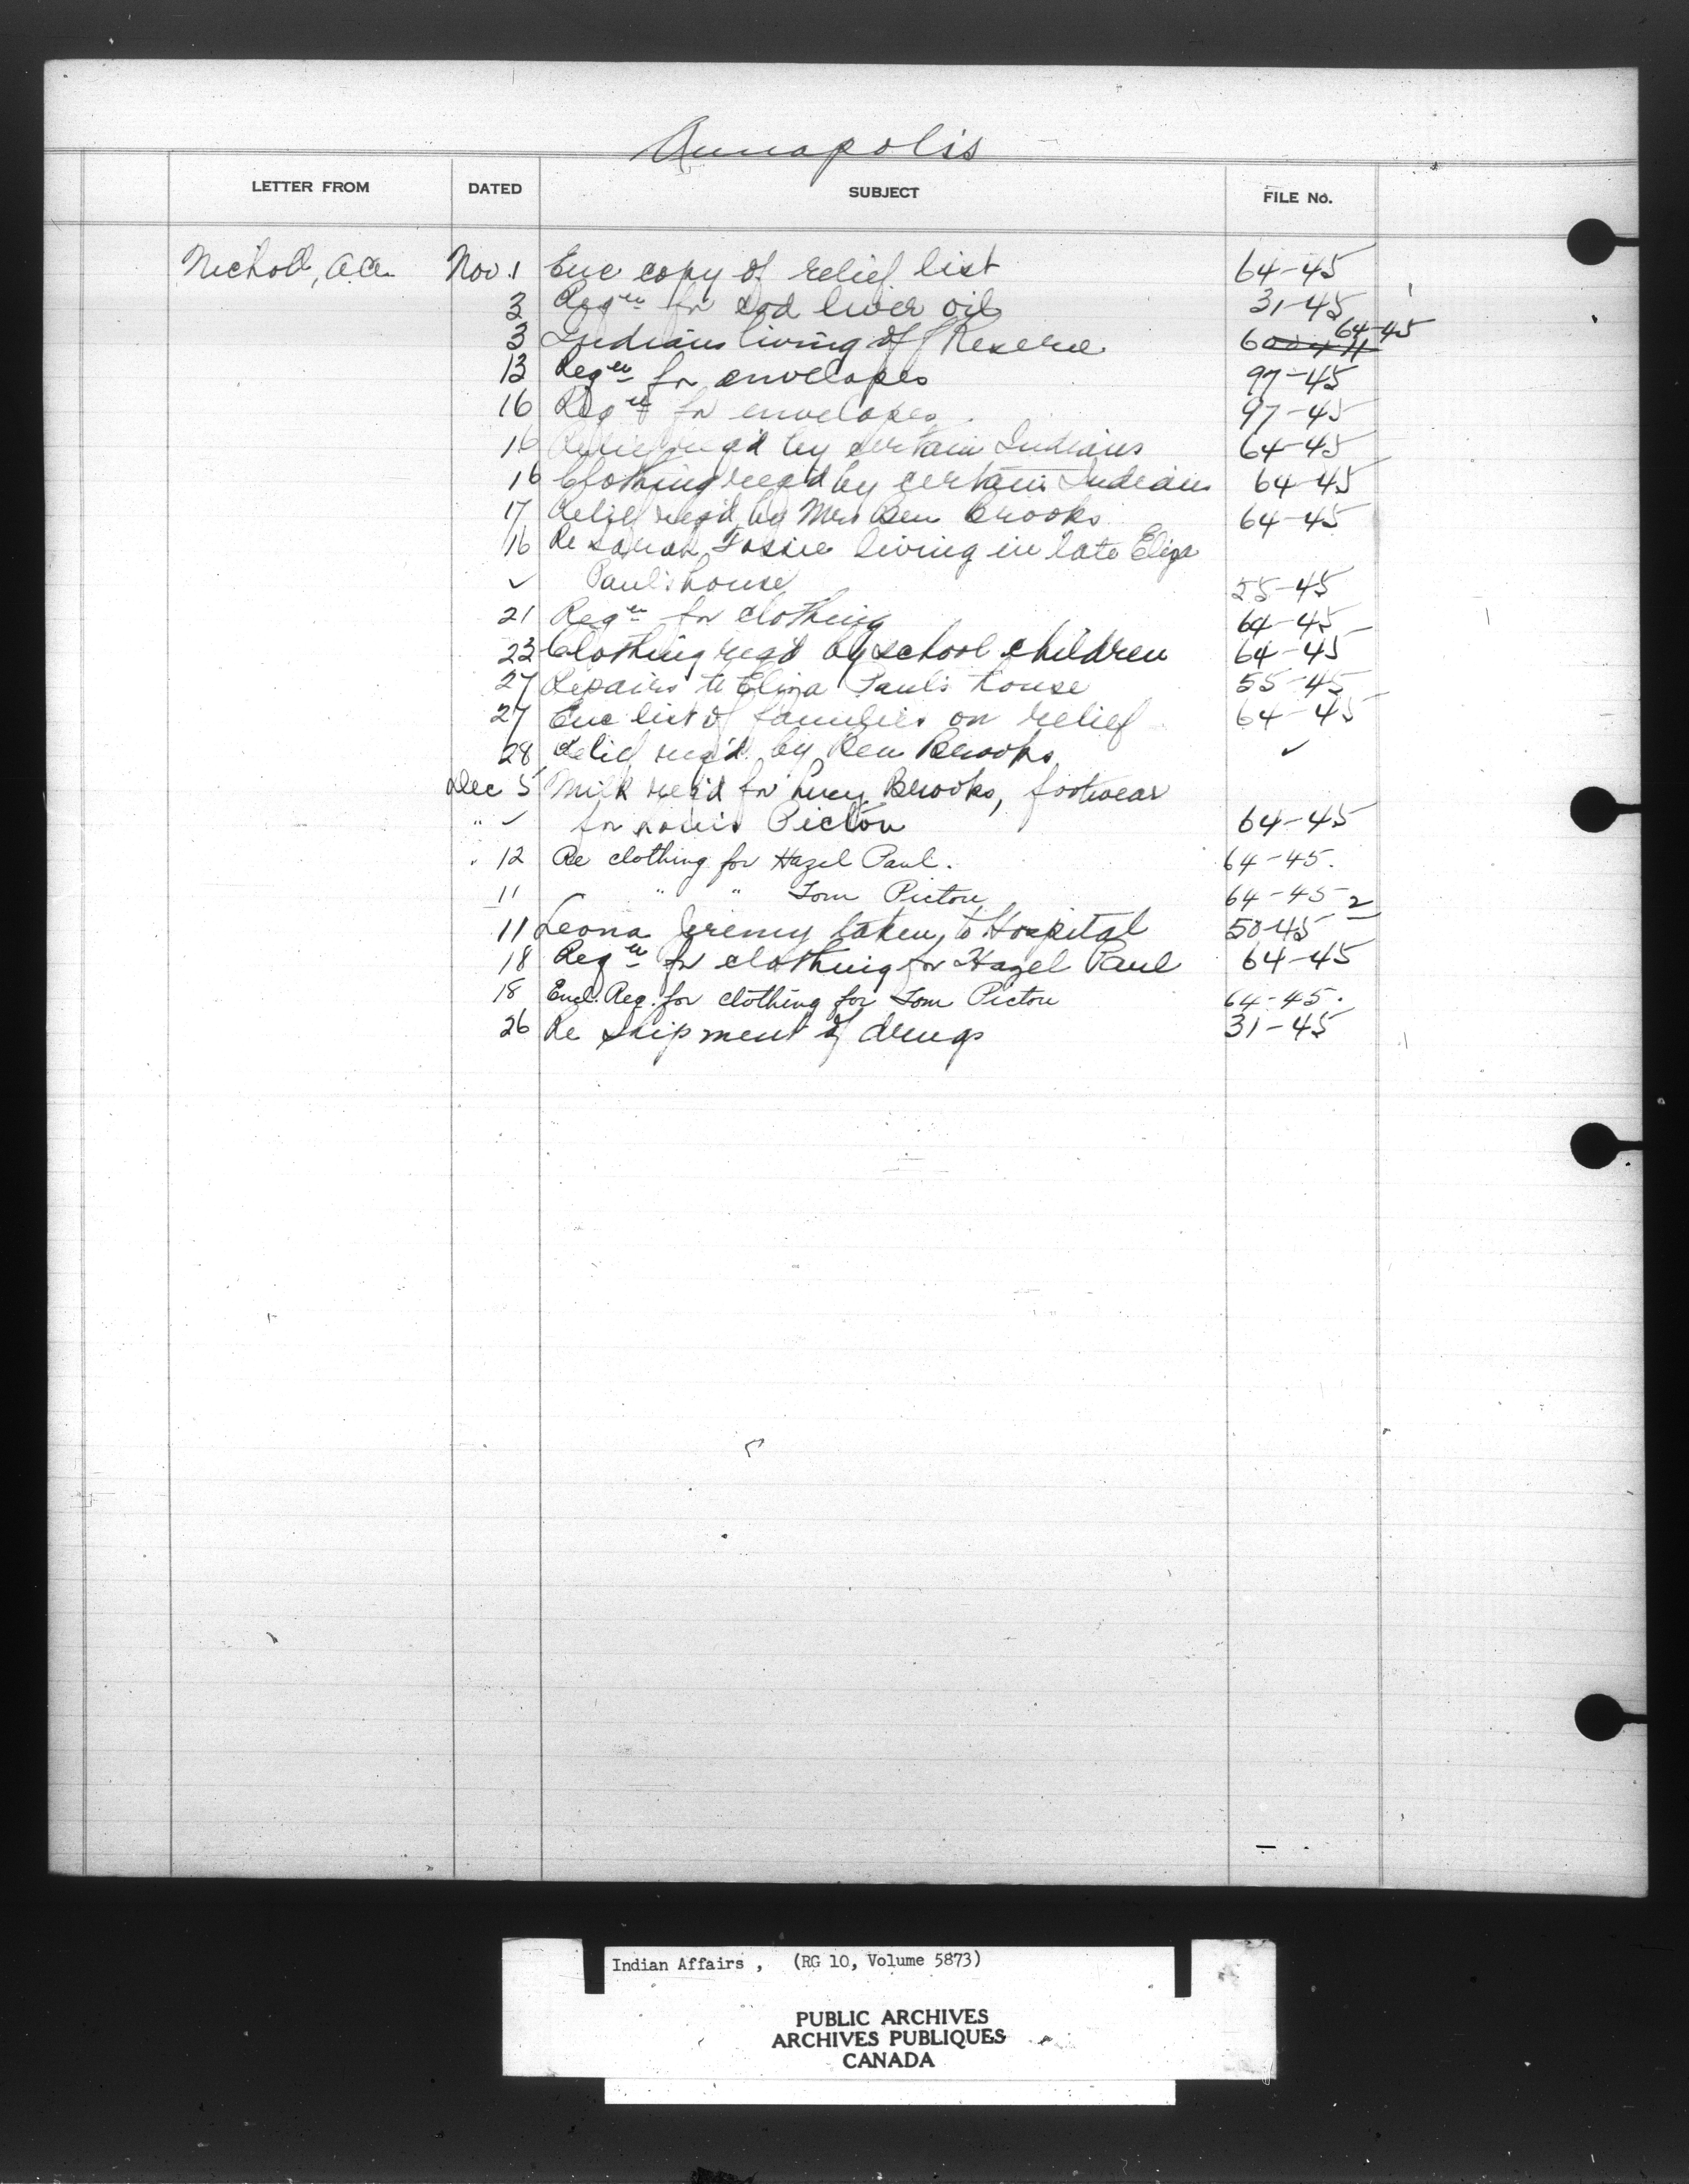 Annapolis
LETTER FROM DATED SUBJECT FILE No.
Nov. 1 Enc copy of relief list 64-45
3 Reqn for Cod liver oil 31-45
64-45
3 Indians living off Reserve
13 Reqn for envelopes 97-45
16 Reqn for envelopes 97-45
16 Relief req'd by certain Indians 64-45
16 Clothing req'd by certain Indians 64-45
17 Relief req'd by Mrs Ben Brooks 64-45
16 Re Sarah living in late Eliza
✓ Paul's house 55-45
21 Reqn for clothing 64-45
23 Clothing req'd by school children 64-45
27 Repairs to Eliza Paul's house 55-45
27 Enc list of families on relief 64-45
28 Relief req'd by Ben Brooks ✓
Dec 5 Milk req'd for Lucy Brooks, footwear
" ✓ for Louis Picton 64-45
" 12 Re clothing for Hazel Paul. 64-45.
11 " " Tom Picton 64-45-2
11 Leona Jeremy taken to Hospital 50-45
18 Reqn for clothing for Hazel Paul 64-45
18 Encl. Req. for clothing for Tom Picton 64-45.
26 Re shipment of drugs 31-45
Indian Affairs , (RG 10, Volume 5873)
PUBLIC ARCHIVES
ARCHIVES PUBLIQUES
CANADA